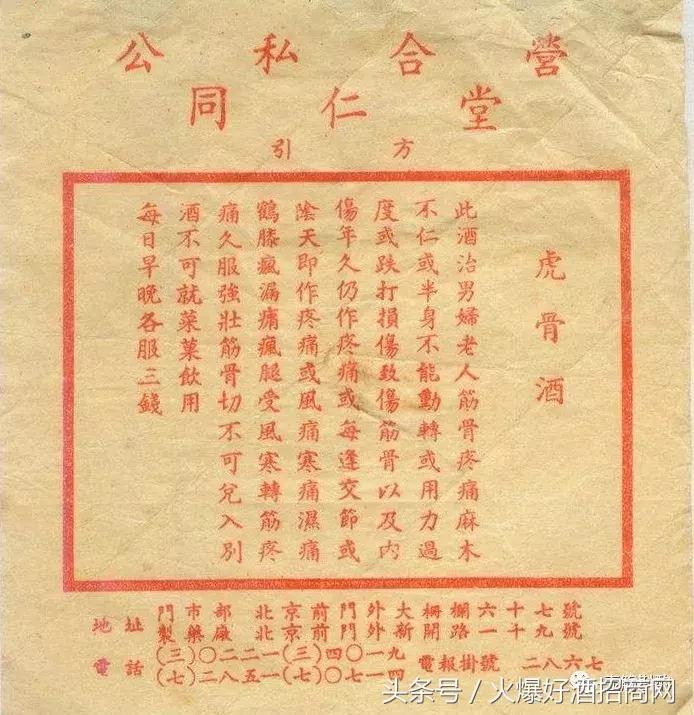 公私合營
同仁堂
引方
虎骨酒
此酒治男婦老人筋骨疼痛麻木
不仁或半身不能動轉或用力過
度或跌打損傷致傷筋骨以及內
傷年久仍作疼痛或每逢交節或
陰天即作疼痛或風痛寒痛濕痛
鶴膝瘋漏痛瘋腿受風寒轉筋疼
痛久服強壯筋骨切不可兌入別
酒不可就菜菓飲用
每日早晚各服三錢
地址 門市部 北京前門外大柵欄六十七號
製藥廠 北京前門外新開路一十九號
電話 (三)〇二二一(三)四〇一九
(七)二八五一(七)〇七一四 電報掛號 二八六七
头条号／火爆好酒招商网